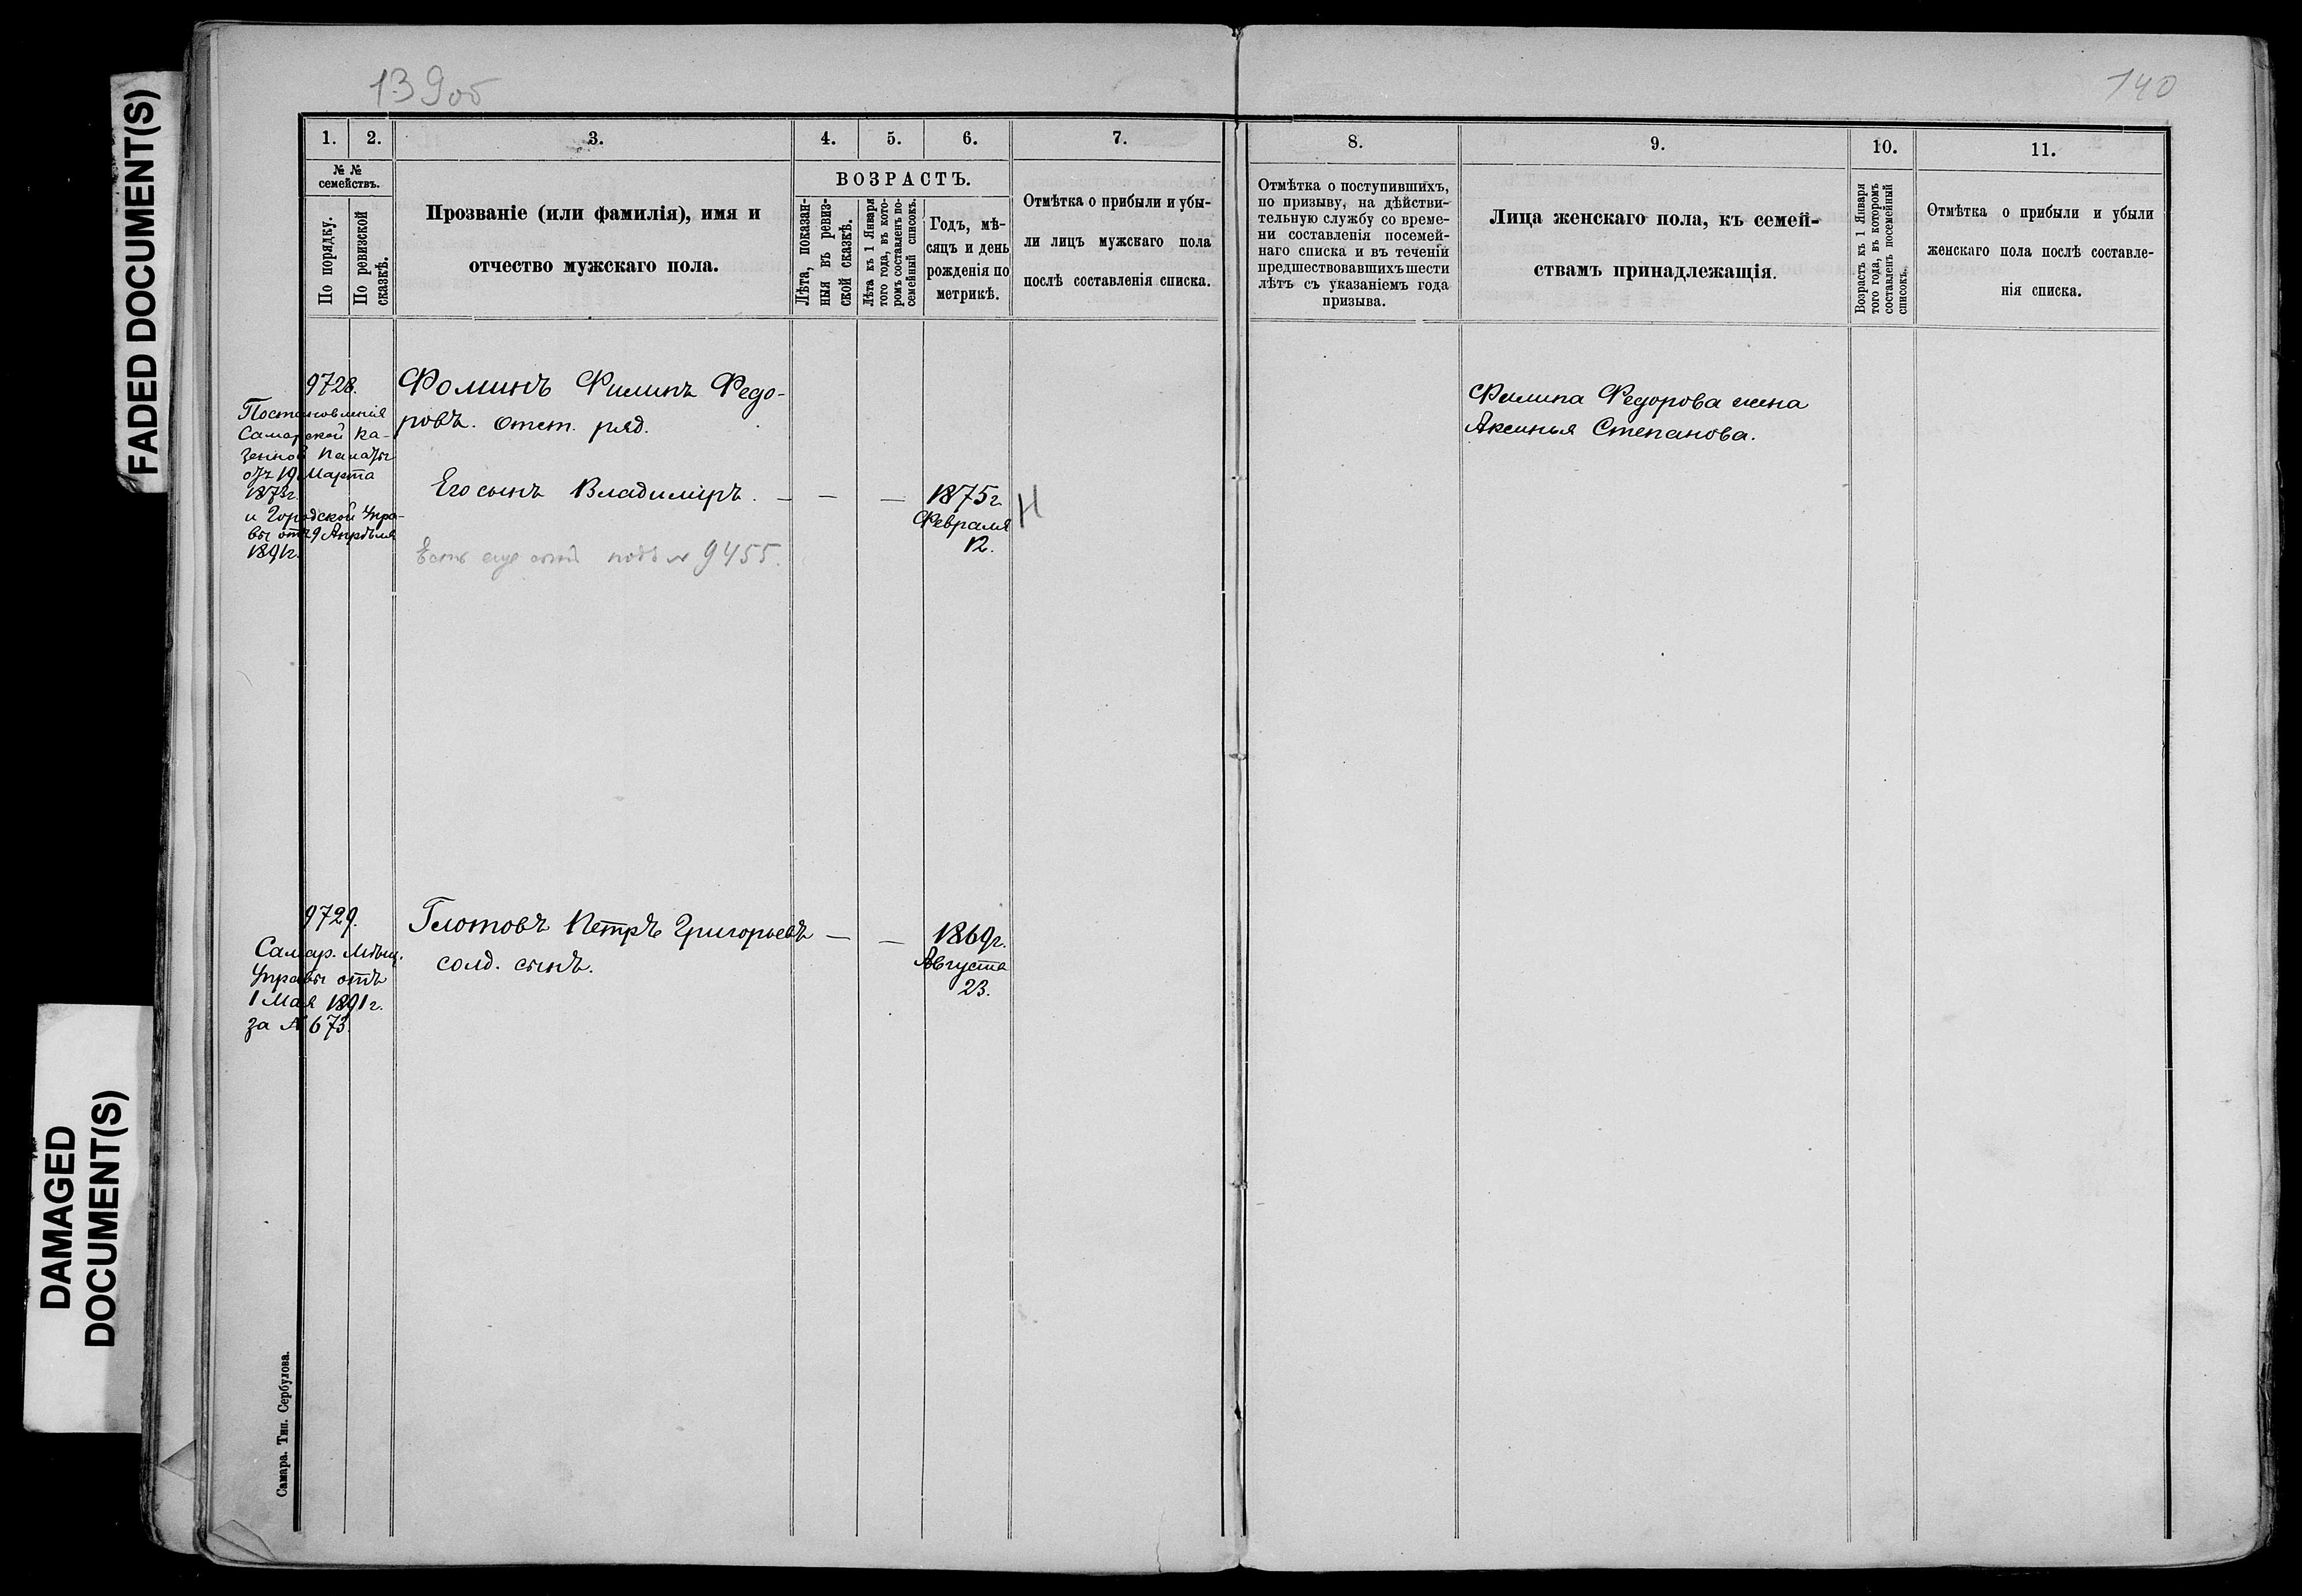 FADED DOCUMENT(S)
DAMAGED
DOCUMENT(S)
139об
140
1.
2.
3.
4.
5.
6.
7.
8.
9.
10.
11.
№ №
семействъ.
По порядку.
По ревизской
сказкѣ.
Прозваніе (или фамилія), имя и
отчество мужскаго пола.
ВОЗРАСТЪ.
Лѣта, показан-
ныя въ ревиз-
ской сказкѣ.
Лѣта къ 1 Января
того года, въ кото-
ромъ составленъ по-
семейный списокъ.
Годъ, мѣ-
сяцъ и день
рожденія по
метрикѣ.
Отмѣтка о прибыли и убы-
ли лицъ мужскаго пола
послѣ составленія списка.
Отмѣтка о поступившихъ,
по призыву, на дѣйстви-
тельную службу со време-
ни составленія посемей-
наго списка и въ теченіи
предшествовавшихъ шести
лѣтъ съ указаніемъ года
призыва.
Лица женскаго пола, къ семей-
ствамъ принадлежащія.
Возрастъ къ 1 Января
того года, въ которомъ
составленъ посемейный
списокъ.
Отмѣтка о прибыли и убыли
женскаго пола послѣ составле-
нія списка.
9728.
Постановленія
Самарской Ка-
зенной Палаты
отъ 19 Марта
1873г.
и Городской Упра-
вы отъ 9 Апрѣля
1891г.
Фоминъ Филипъ Федо-
ровъ. отст. ряд.
Его сынъ Владиміръ. — — —
1875г.
Февраля
12.
Н
Есть еще сынъ подъ № 9455.
Филипа Федорова жена
Аксинья Степанова.
9729.
Самар. Мѣщ.
Управы отъ
1 Мая 1891г.
за № 673.
Глотовъ Петръ Григорьевъ — —
солд. сынъ.
1869г.
Августа
23.
Самара. Тип. Сербулова.